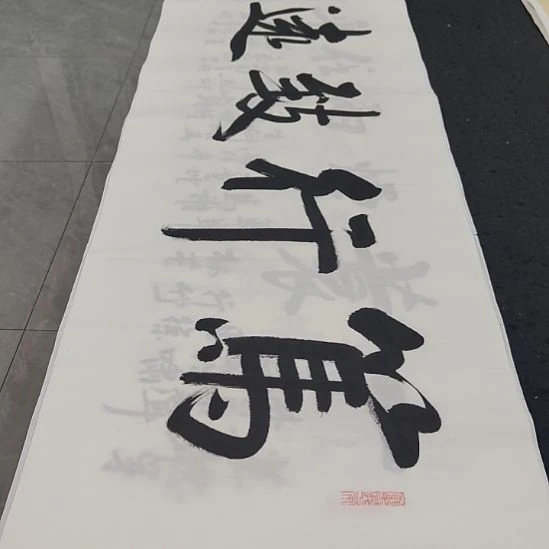 篤行致遠